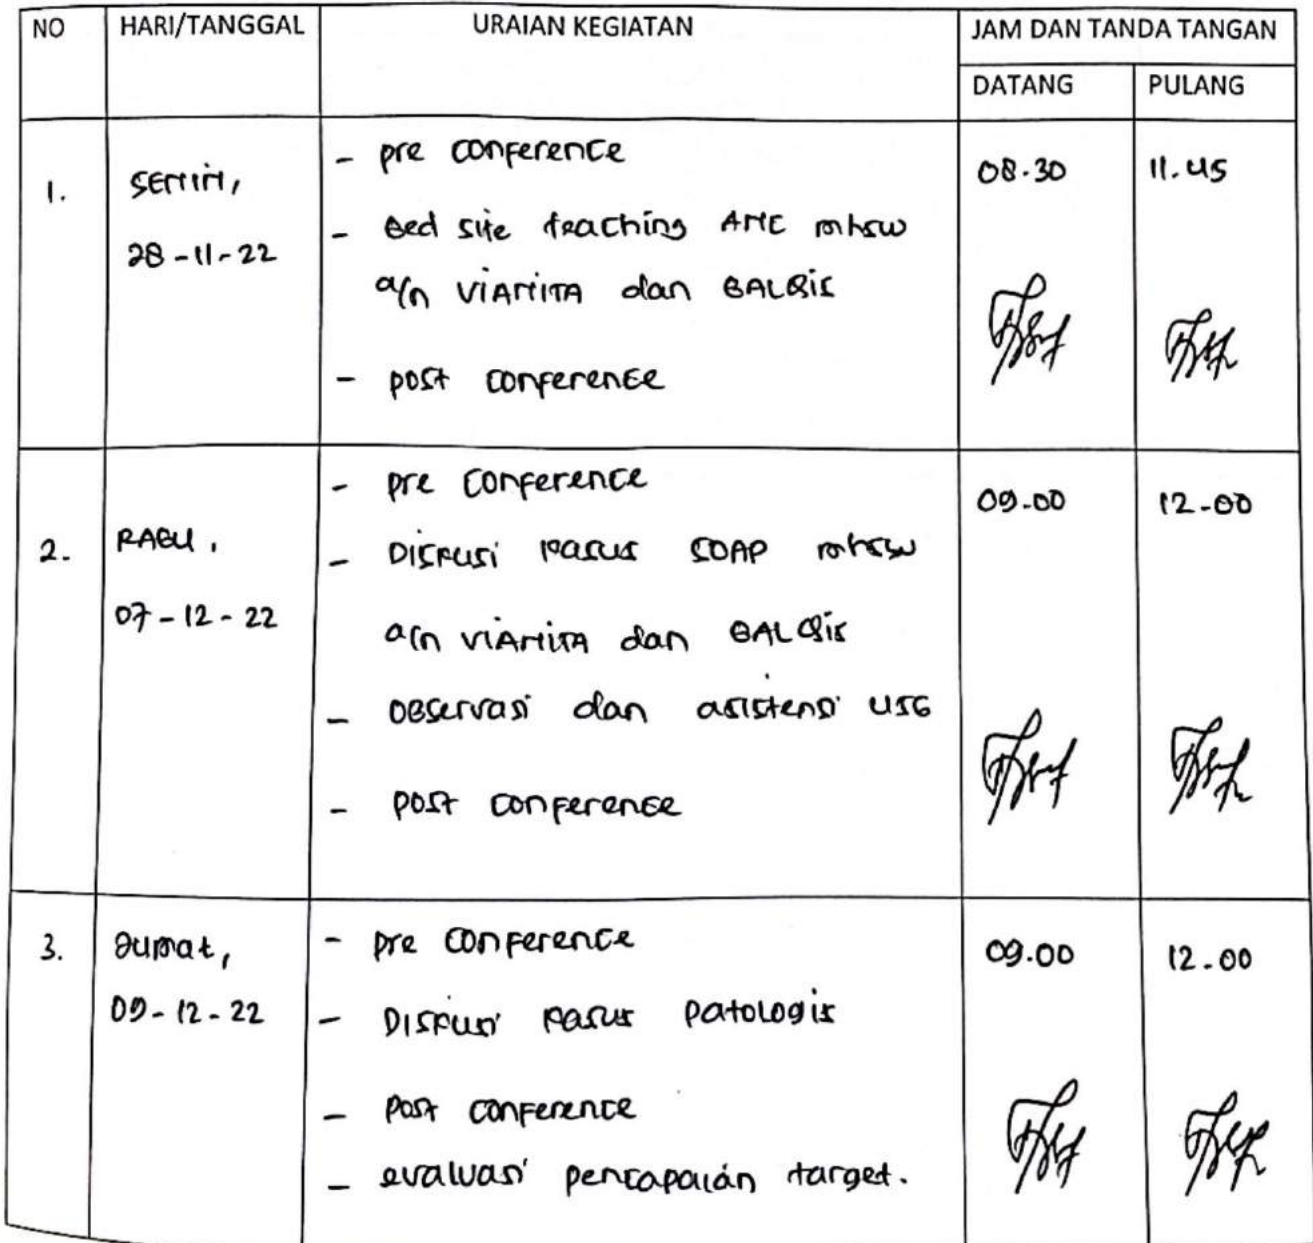 NO HARI/TANGGAL URAIAN KEGIATAN JAM DAN TANDA TANGAN
DATANG PULANG
1. SENIN, 28-11-22
- pre conference
- Bed site teaching ANC mhsw
a/n VIANITA dan BALQis
- post conference
08.30 11.45
2. RABU, 07-12-22
- pre conference
- Diskusi kasus SOAP mhsw
a/n VIANITA dan BALQis
- observasi dan asistensi USG
- post conference
09.00 12.00
3. Jumat, 09-12-22
- pre conference
- Diskusi kasus patologis
- post conference
- evaluasi pencapaian target.
09.00 12.00